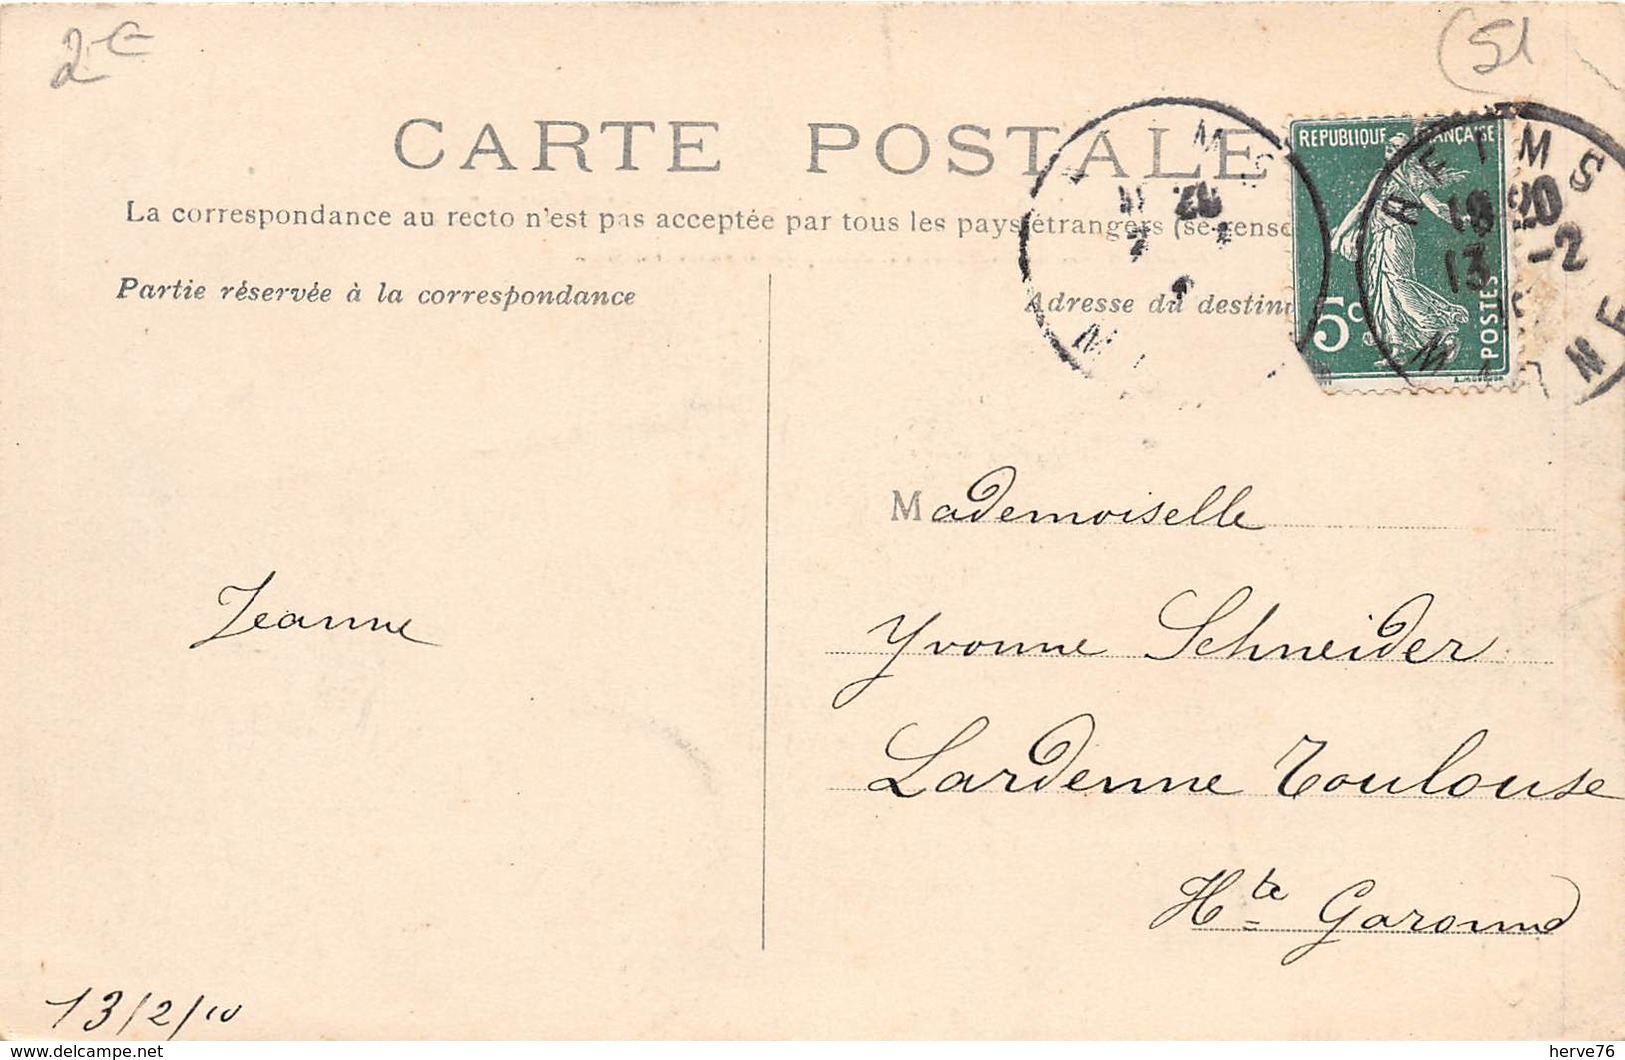 2€
(51
CARTE POSTALE
La correspondance au recto n'est pas acceptée par tous les pays étrangers (se rense
Partie réservée à la correspondance
Adresse du destin
REPUBLIQUE FRANÇAISE
5c
POSTES
REIMS
18 20
13 -2
MARNE
Mademoiselle
Yvonne Schneider
Lardenne Toulouse
Hte Garonne
Jeanne
13/2/10
www.delcampe.net
herve76